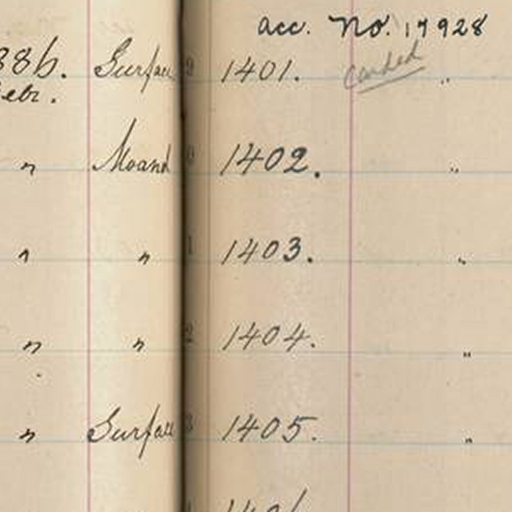 acc. No. 17928
886. Surface 1401. carded "
ebr.
" Mound 1402. "
" " 1403. "
" " 1404. "
" Surface 1405. "